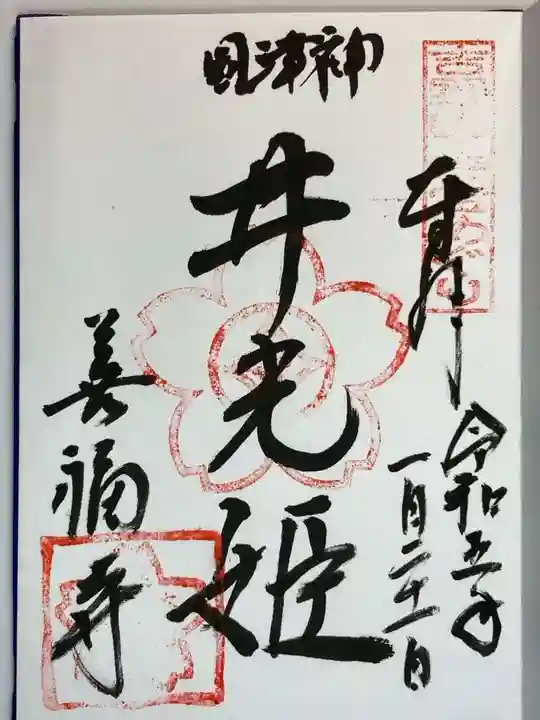 奉拝
令和五年
一月二十一日
國津神
井光姫
善福寺